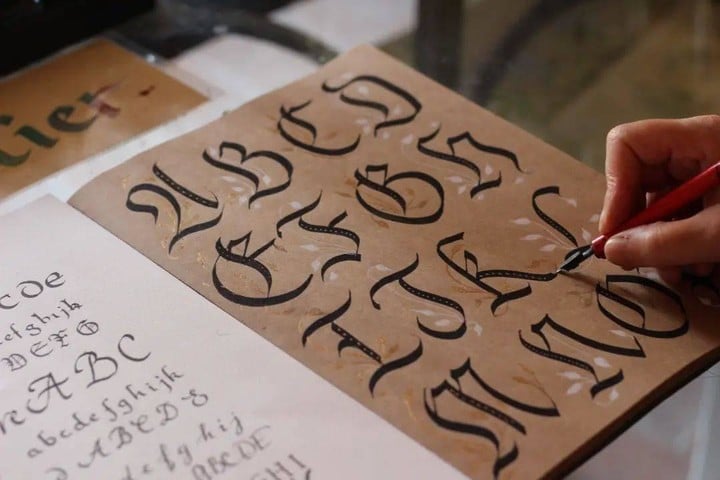 tier.
A B C D
E F G H
J K L
M N O
C D e
efghijk
D E F G
A B C
abcdefghijk
A B C D E
efghij
ABCDE
GHI